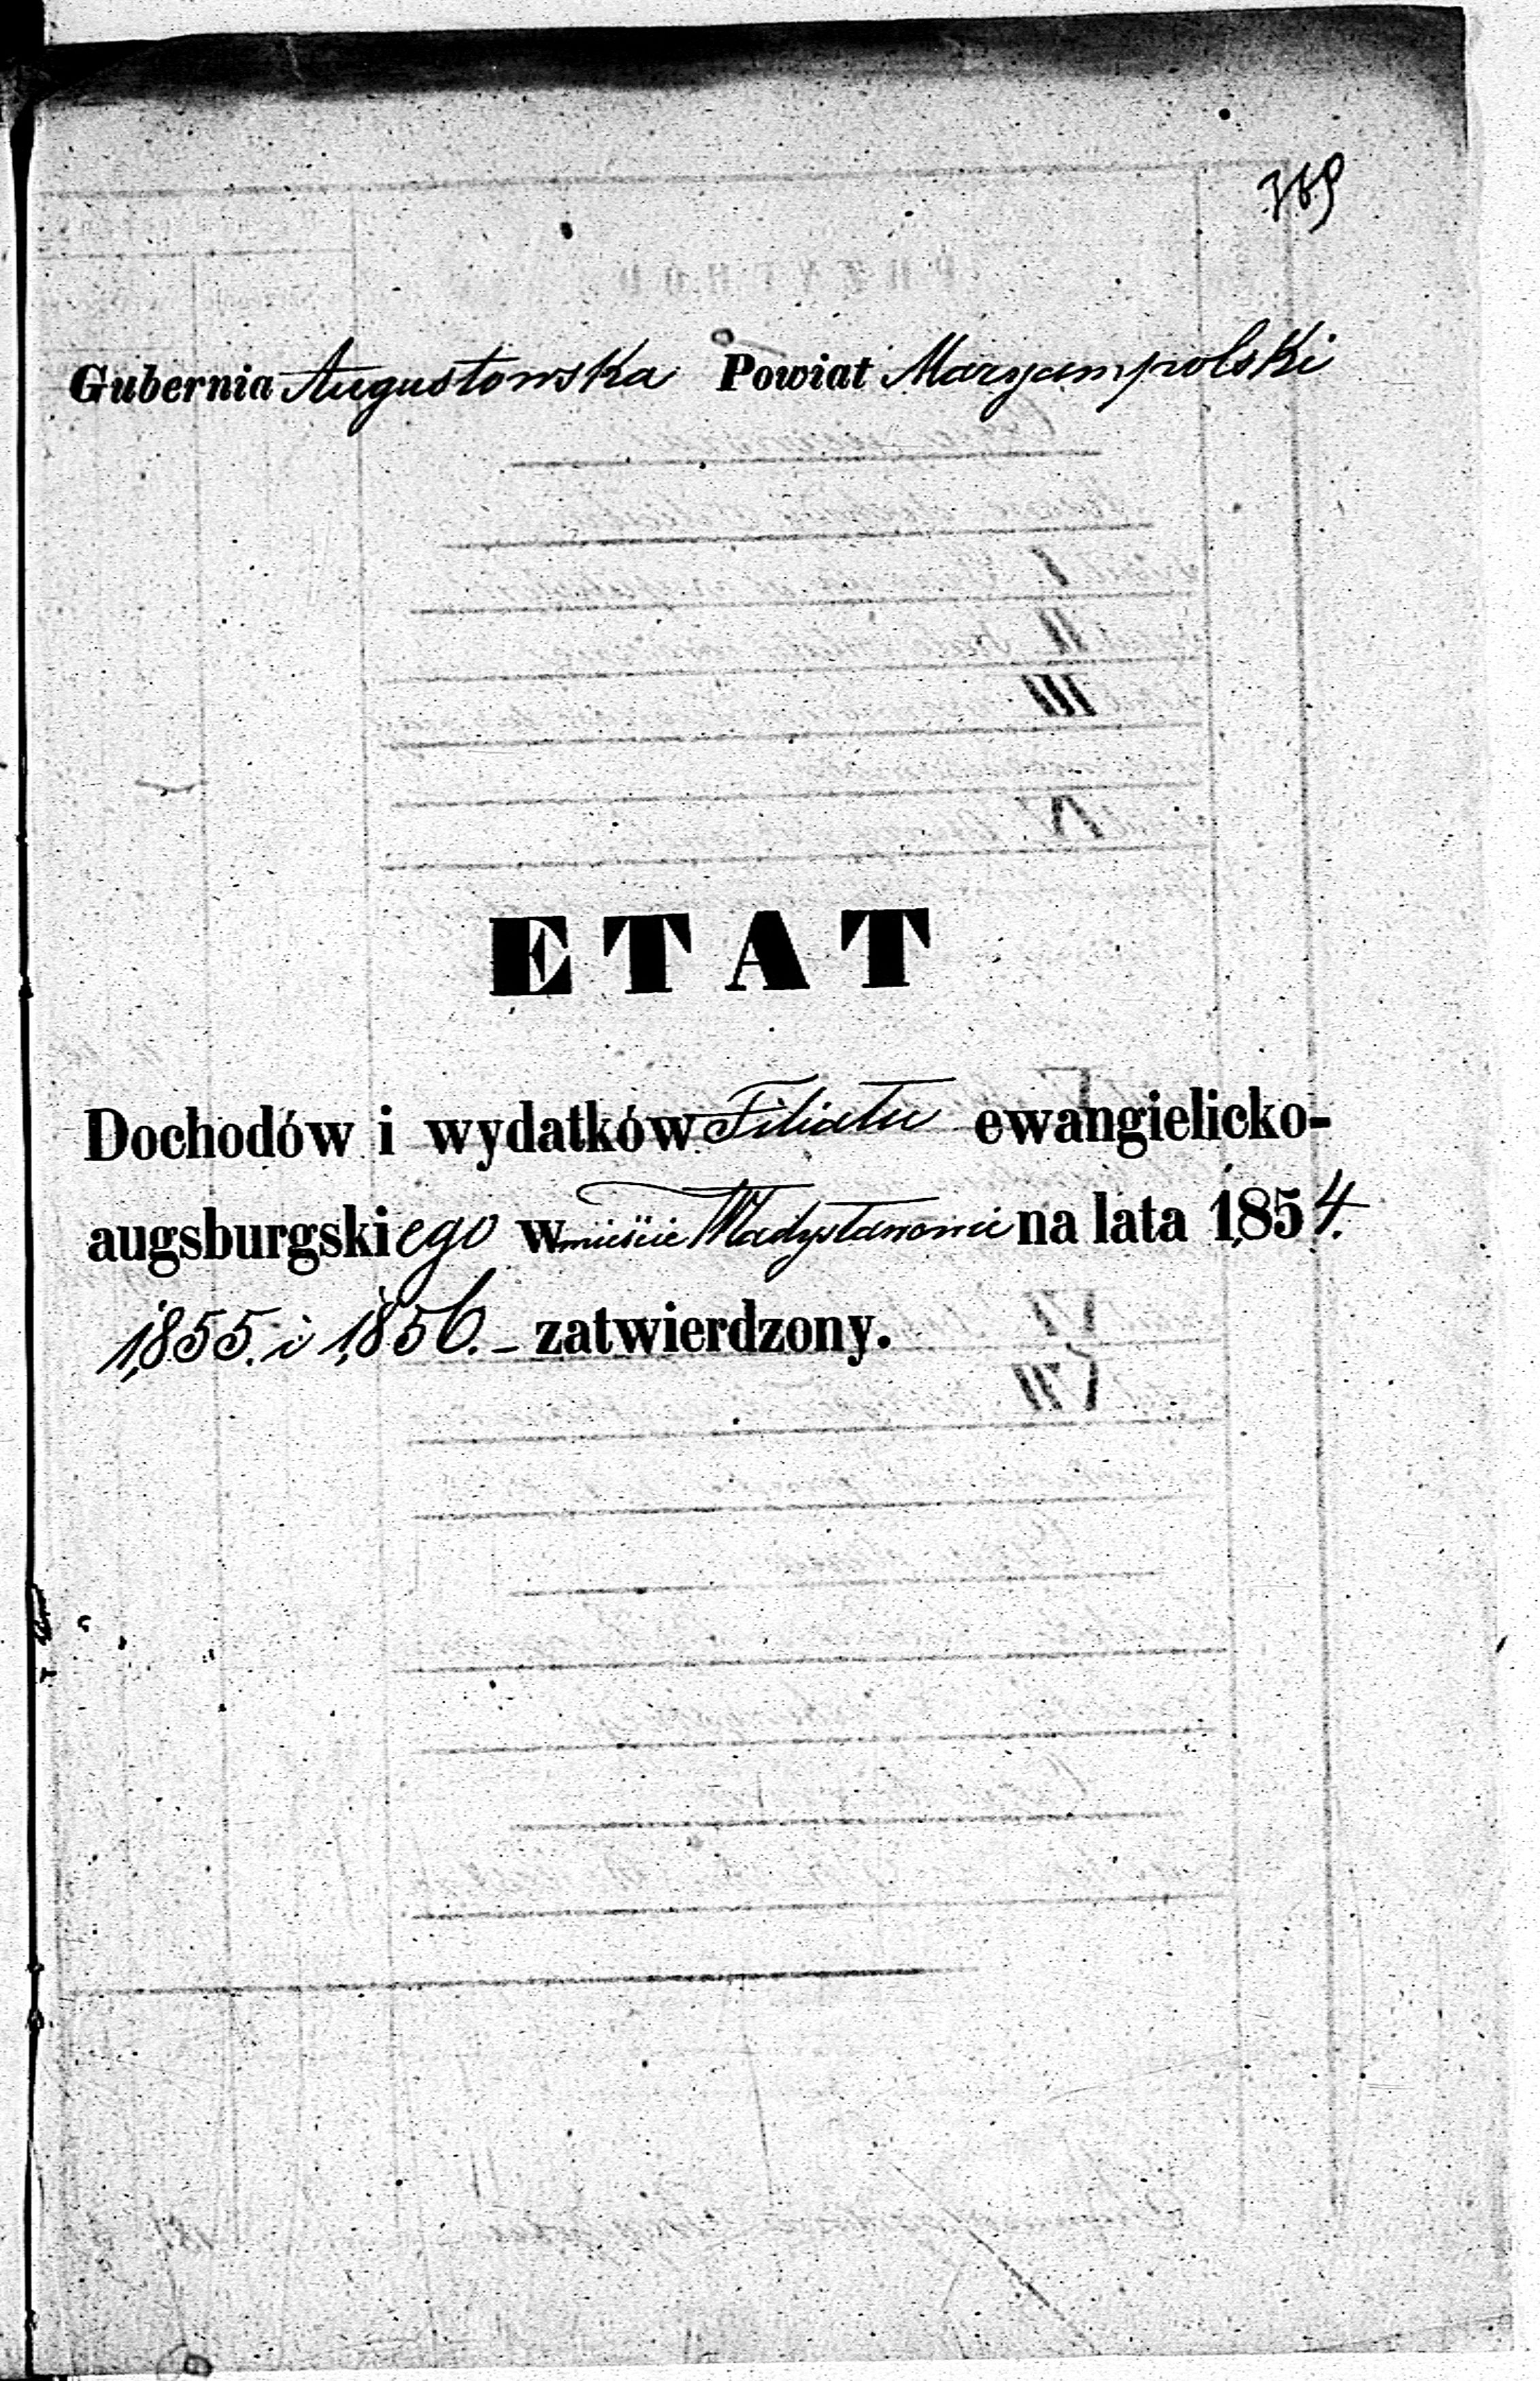 369
Gubernia Augustowska Powiat Maryampolski
ETAT
Dochodów i wydatków Filiału ewangielicko-
augsburgskiego w mieście Władysławowie na lata 1854.
1855. i 1856. - zatwierdzony.